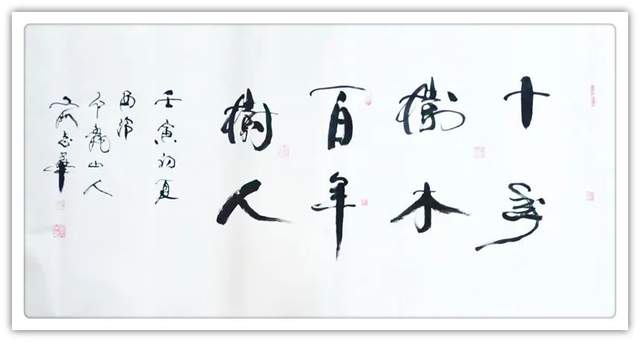 十年
樹木
百年
樹人
壬寅初夏
西泠
龍山人
志華